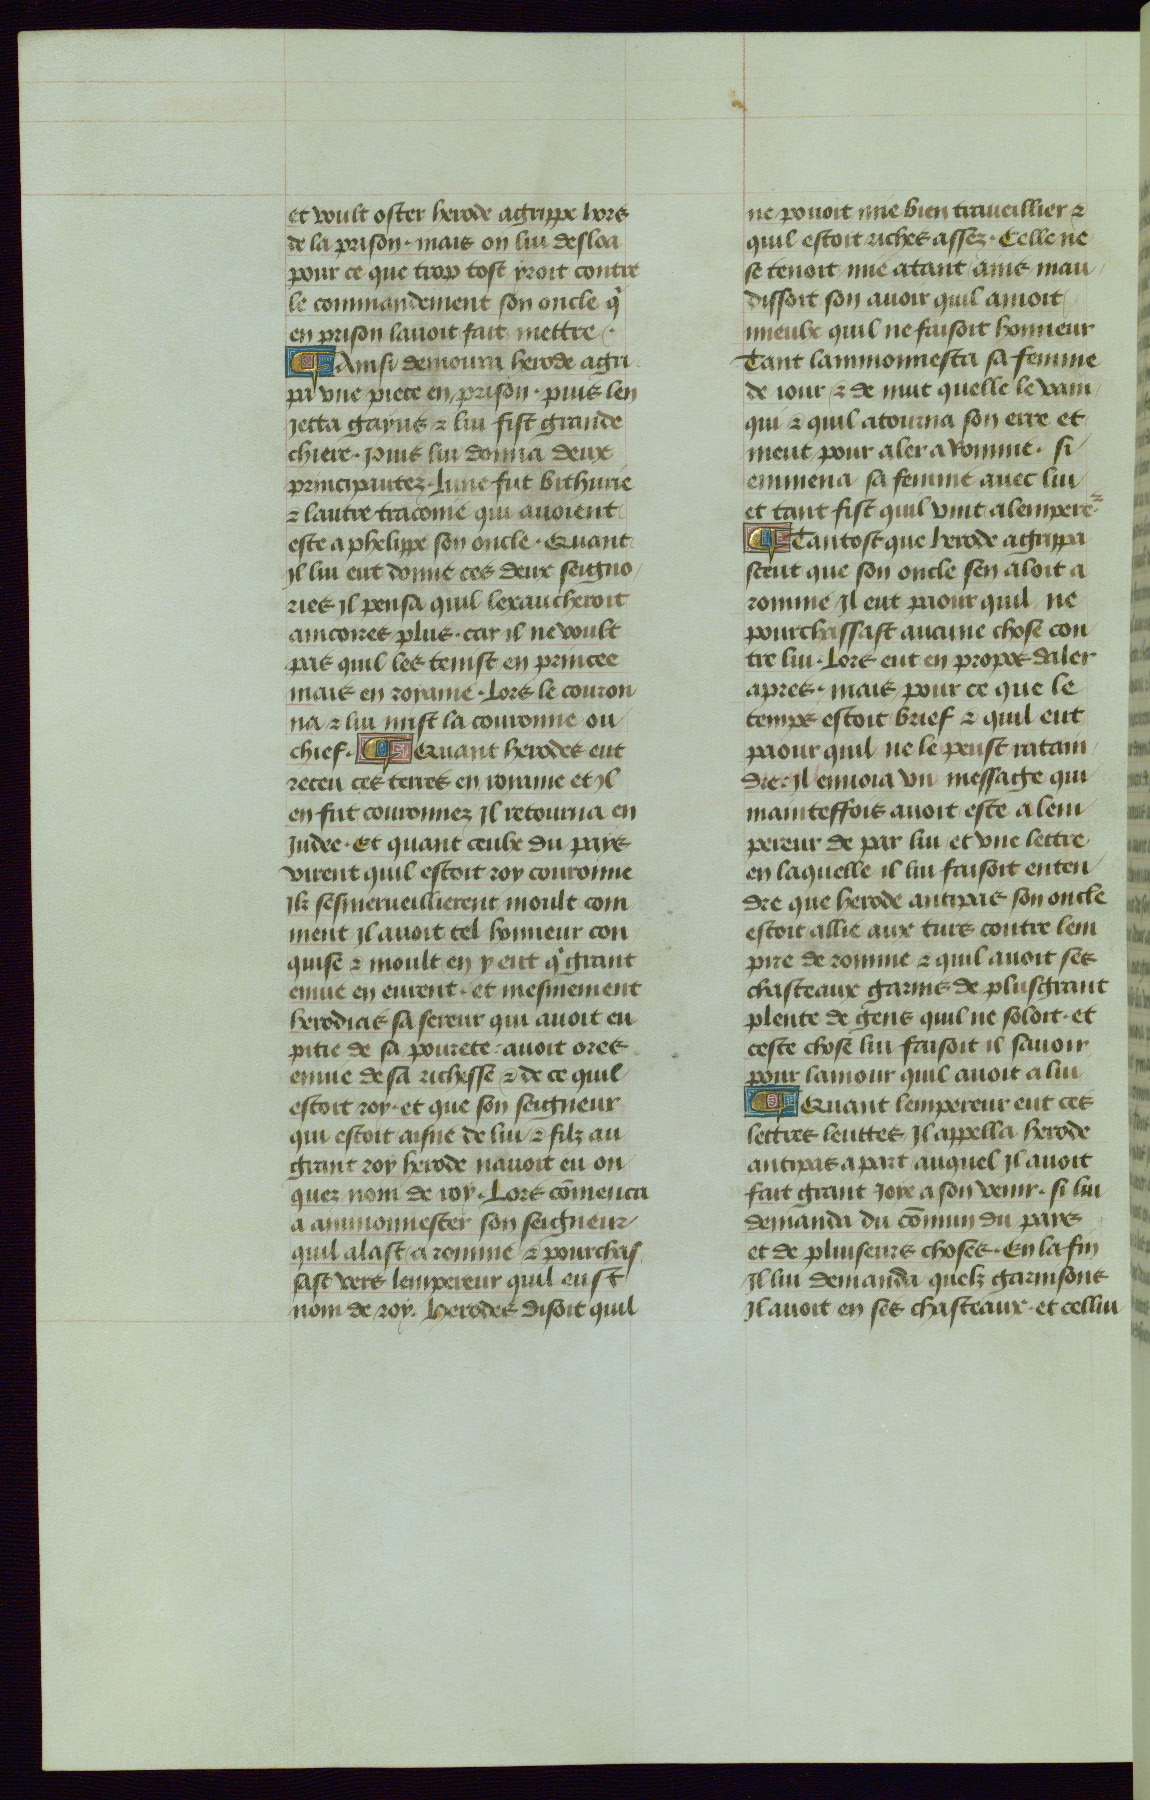 et voult oster herode agrippe hors
de la prison · mais on lui desloa
pour ce que trop tost yroit contre
le commandement son oncle q̄
en prison lauoit fait mettre ·
Ainsi demoura herode agri
pa vne piece en prison · puis len
jetta gayus ⁊ lui fist grande
chiere · puis lui donna deux
principautez · Lune fut bithurie
⁊ lautre traconie qui auoient
este a phelippe son oncle · Quant
jl lui eut donne ces deux seigno
ries jl pensa quil lexaucheroit
aincores plus · car jl ne voult
pas quil les tenist en princee
mais en royame · Lors le couron
na ⁊ lui mist la couronne ou
chief · Quant herodes eut
receu ces terres en royame et jl
en fut couronnez jl retourna en
judee · Et quant ceulx du pays
virent quil estoit roy couronne
jlz sesmerueillierent moult com
ment jl auoit tel honneur con
quise ⁊ moult en y eut q̄ grant
enuie en eurent · et mesmement
herodias sa sereur qui auoit eu
pitie de sa pourete · auoit ores
enuie de sa richesse ⁊ de ce quil
estoit roy · et que son seigneur
qui estoit aisne de lui ⁊ filz au
grant roy herode nauoit eu on
quez nom de roy · Lors cōmenca
a ammonnester son seigneur
quil alast a romme ⁊ pourchas
sast vers lempereur quil eust
nom de roy. Herodes disoit quil
ne pouoit mie bien traueillier ⁊
quil estoit riches assez · Celle ne
se tenoit mie atant ains mau
dissoit son auoir quil amoit
mieulx quil ne faisoit honneur
Tant lammonnesta sa femme
de iour ⁊ de nuit quelle le vain
qui ⁊ quil atourna son erre et
meut pour aler a Romme · si
emmena sa femme auec lui
et tant fist quil vint a lempere
Tantost que herode agrippa
sceut que son oncle sen aloit a
romme jl eut paour quil ne
pourchassast aucune chose con
tre lui · Lors eut en propos daler
apres · mais pour ce que le
temps estoit brief ⁊ quil eut
paour quil ne le peust ratain
dre · jl enuoia vn message qui
mainteffois auoit este a lem
pereur de par lui et vne lettre
en laquelle il lui faisoit enten
dre que herode antipas son oncle
estoit allie aux turs contre lem
pire de romme ⁊ quil auoit ses
chasteaux garnis de plusgrant
plente de gens quil ne soloit · et
ceste chose lui faisoit il sauoir
pour lamour quil auoit a lui
Quant lempereur eut ces
lettres leuttes jl appella herode
antipas a part auquel jl auoit
fait grant joye a son venir · si lui
demanda du cōmun du pays
et de pluiseurs choses · En la fin
jl lui demanda quelz garnisons
jl auoit en ses chasteaux · et cellui